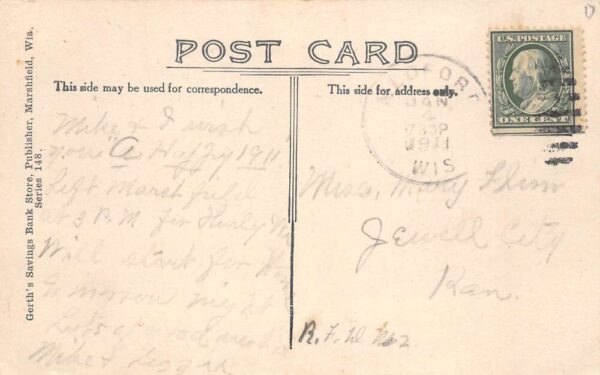 POST CARD
This side may be used for correspondence.
This side for address only.
Gerth's Savings Bank Store, Publisher, Marshfield, Wis.
Series 148.
U.S. POSTAGE
ONE CENT
MEDFORD
JAN
4
1911
WIS
Mike & I wish
you A Happy 1911
Left Marshfield
at 3 P.M for Hurley
Will start for
to morrow night
Lots of good wishes
Mike &
Miss. Mary
Jewell City
Kan.
R. F. D No 2